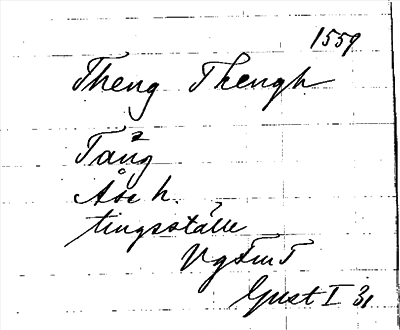 1559
Theng Thengh
Täng
Åse h.
tingsställe
VgFmT
Gust I 31